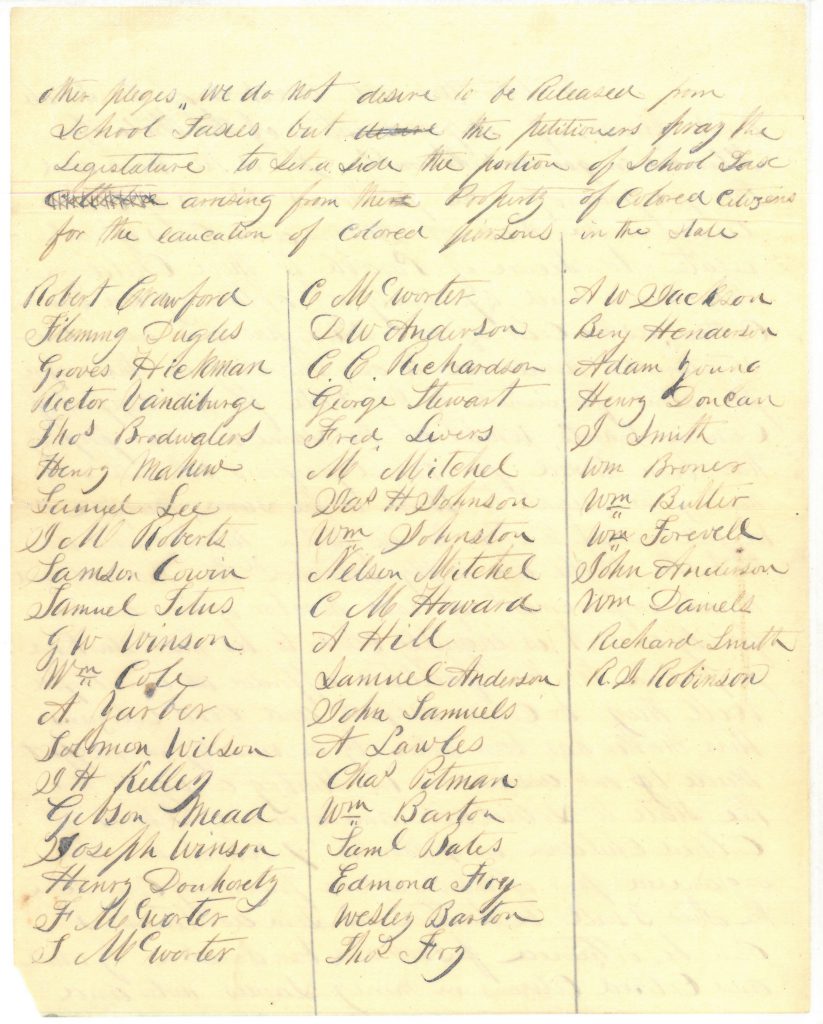 other pleges, we do not desire to be Released from
School Taxes but desire the petitioners pray the
Legistature to Set a Side the portion of School Tax
arrising from there Property of Colored Citizens
for the education of Colored persons in the State
Robert Crawford
Fleming Dugles
Groves Hickman
Rector Vandiburge
Thos Brodwaters
Henry Mahew
Samuel Lee
J M Roberts
Samson Cowin
Samuel Titus
G W Winson
Wm Cole
A. Yarber
Solomon Wilson
J H Kelley
Gibson Mead
Joseph Winson
Henry Douhoretz
F McWorter
S McWorter
C McWorter
D W Anderson
C. C. Richardson
George Stewart
Fred Livers
M Mitchel
Jas H Johnson
Wm Johnston
Nelson Mitchel
C M Howard
A Hill
Samuel Anderson
John Samuels
A Lawles
Chas Pitman
Wm Barton
Saml Bates
Edmond Fry
Wesley Barton
Thos Fry
A W Jackson
Benj Henderson
Adam Young
Henry Doncan
J Smith
Wm Broner
Wm Butler
Wm Forevell
John Anderson
Wm Daniels
Richard Smith
R. J. Robinson